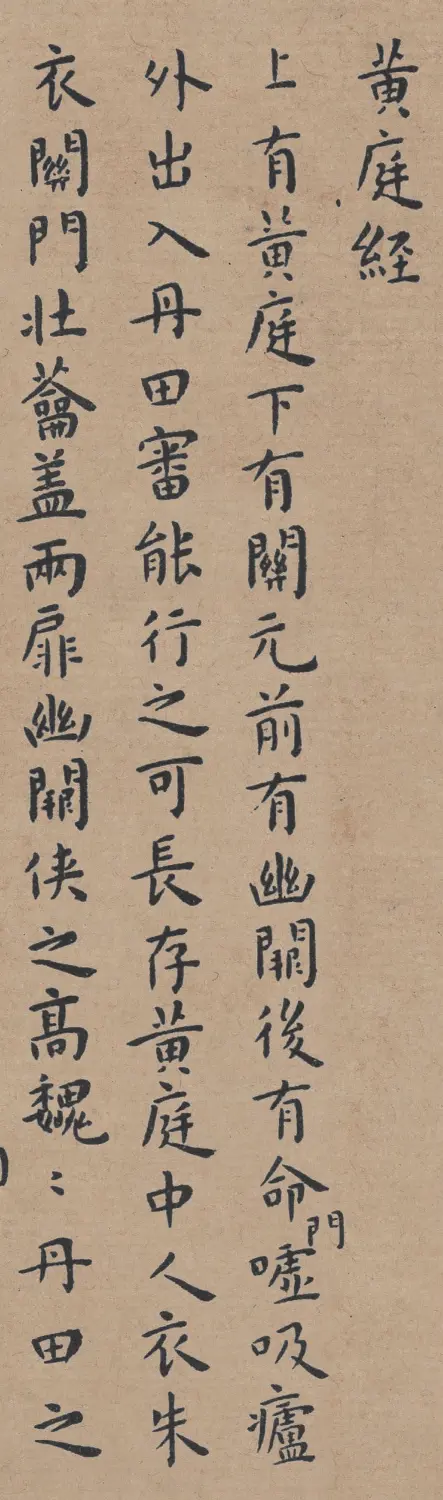 黄庭経
上有黄庭下有關元前有幽闕後有命門噓吸廬
外出入丹田審能行之可長存黄庭中人衣朱
衣關門壯蘥盖兩扉幽闕俠之髙魏〻丹田之